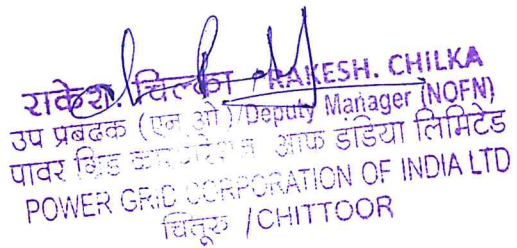 राकेश. चिल्का / RAKESH. CHILKA
उप प्रबंदक (एन ओ) / Deputy Manager (NOFN)
पावर ग्रिड कारपोरेशन आफ इंडिया लिमिटेड
POWER GRID CORPORATION OF INDIA LTD
चित्तूर / CHITTOOR